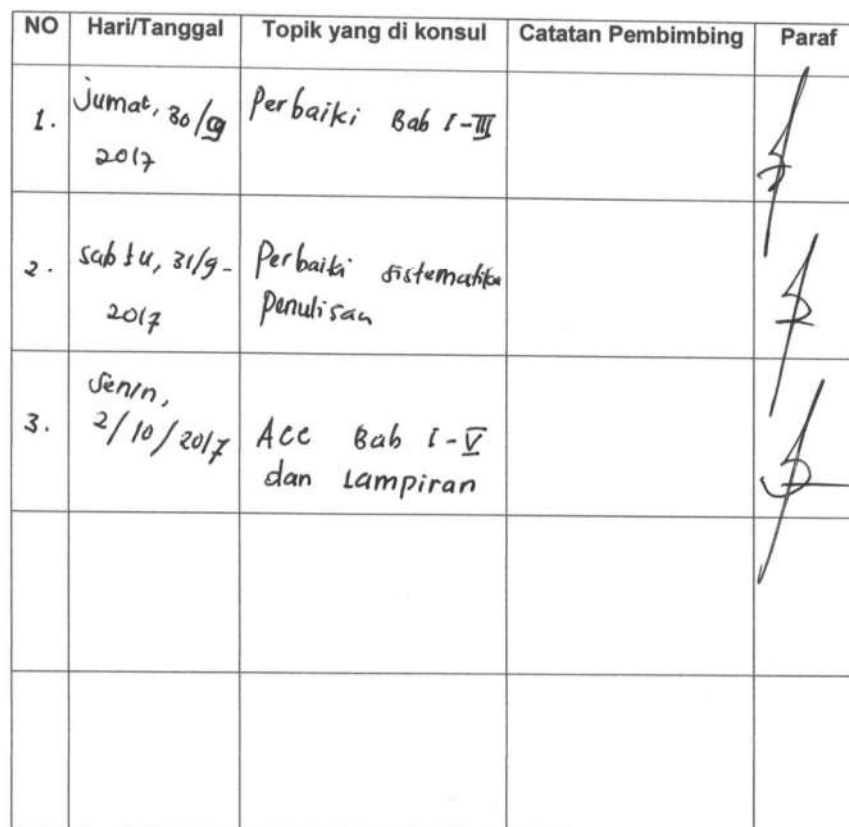 NO Hari/Tanggal Topik yang di konsul Catatan Pembimbing Paraf
1. Jumat, 30/9 2017 Perbaiki Bab I-III
2. Sabtu, 31/9- 2017 Perbaiki sistematika Penulisan
3. Senin, 2/10/2017 Acc Bab I-V dan Lampiran